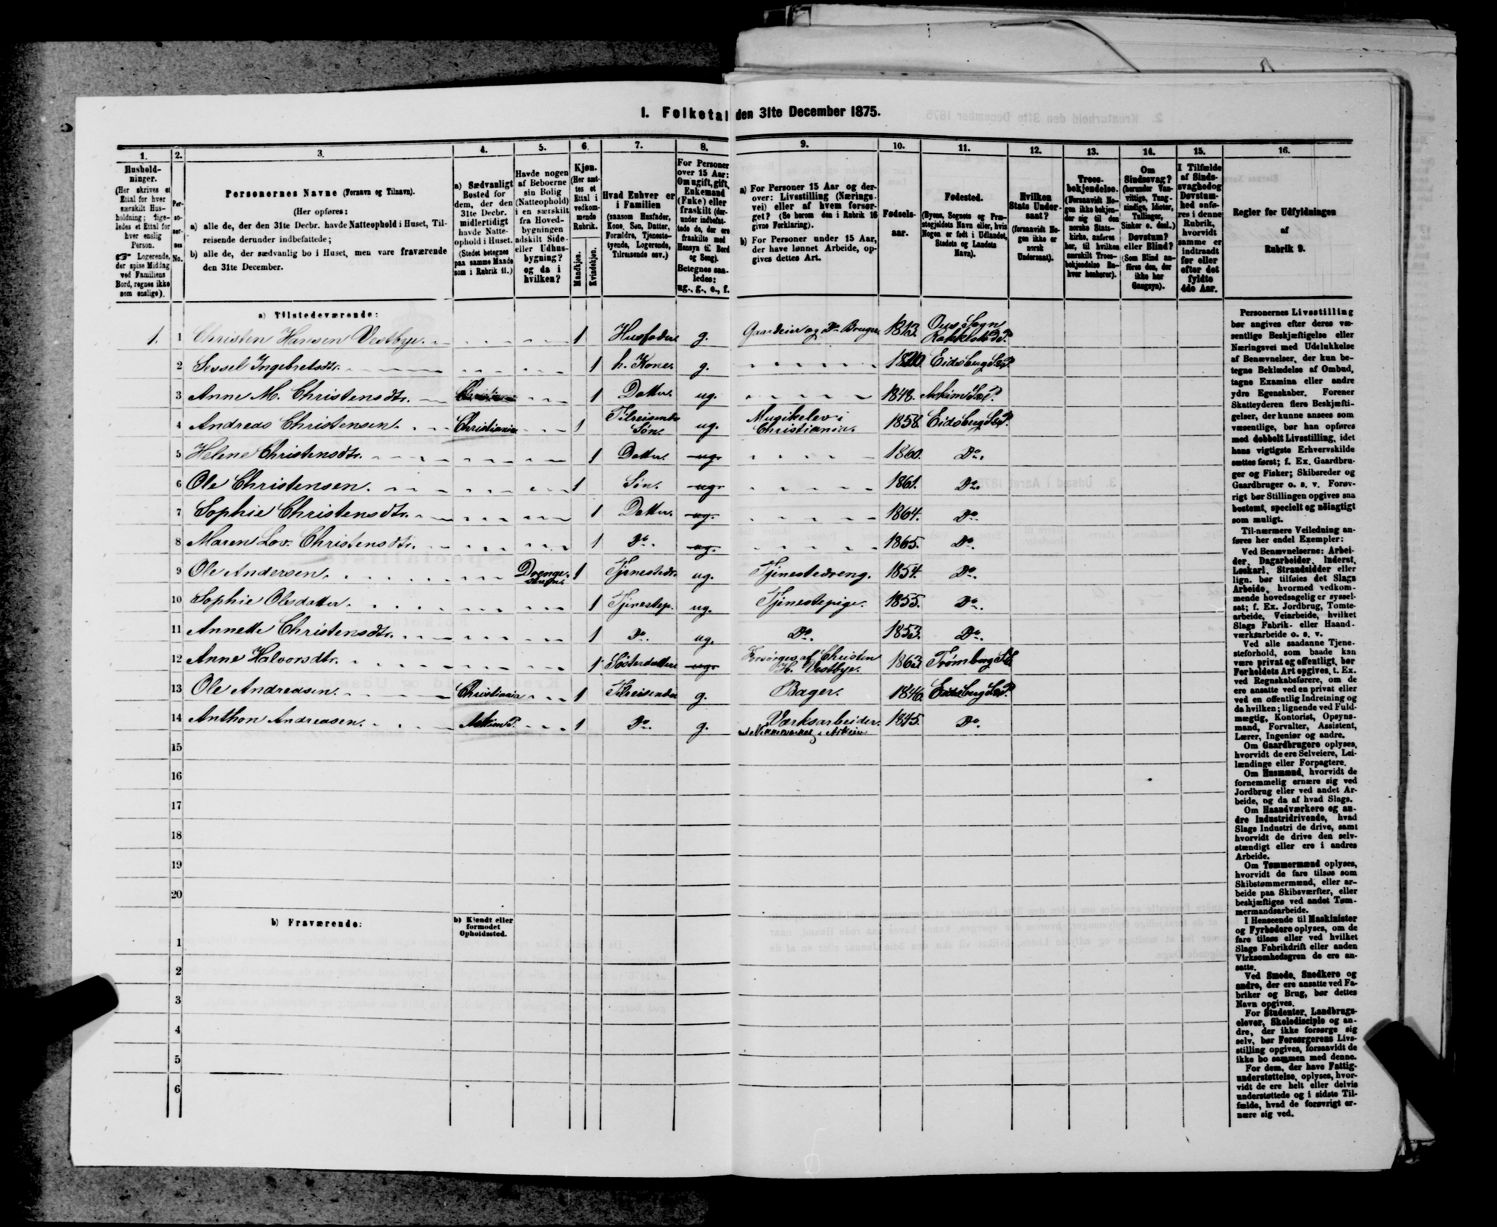 1. Folketal den 31te December 1875.
1. 2. 3. 4. 5. 6. 7. 8. 9. 10. 11. 12. 13. 14. 15. 16.
Hushold-
ninger.
(Her skrives et
Ettal for hver
særskilt Hus-
holdning; lige-
ledes et Ettal for
hver enslig
Person.
Logerende,
der spise Middag
ved Familiens
Bord, regnes ikke
som enslige).
Personernes Navne (Fornavn og Tilnavn).
(Her opføres:
a) alle de, der den 31te Decbr. havde Natteophold i Huset, Til-
reisende derunder indbefattede;
b) alle de, der sædvanlig bo i Huset, men vare fraværende
den 31te December.
a) Sædvanligt
Bosted for
dem, der den
31te Decbr.
midlertidigt
havde Natte-
ophold i Huset.
(Stedet betegnes
paa samme Maade
som i Rubrik 11.)
Havde nogen
af Beboerne
sin Bolig
(Natteophold)
i en særskilt
fra Hoved-
bygningen
adskilt Side-
eller Udhus-
bygning?
og da i
hvilken?
Kjøn.
(Her sæt-
tes et
Ettal i
vedkom-
mende
Rubrik.
Mandkjøn.
Kvindekjøn.
Hvad Enhver er
i Familien
(saasom Husfader,
Kone, Søn, Datter,
Forældre, Tjeneste-
tyende, Logerende,
Tilreisende osv.)
For Personer
over 15 Aar:
Om ugift, gift,
Enkemand
(Enke) eller
fraskilt
Betegnes saa-
ledes:
ug., g., e., f.
a) For Personer 15 Aar og der-
over: Livsstilling (Nærings-
vei) eller af hvem forsør-
get? (Se herom den i Rubrik 16
givne Forklaring).
b) For Personer under 15 Aar,
der have lønnet Arbeide, op-
gives dettes Art.
Fødsels-
aar.
Fødested.
(Byens, Sognets og Præ-
stegjeldets Navn eller, hvis
Nogen er født i Udlandet,
Stedets og Landets
Navn).
Hvilken
Stats Under-
saat?
(forsaavidt No-
gen ikke er
norsk
Undersaat).
Troes-
bekjendelse.
Om
Sindssvag?
Døvstum?
eller Blind?
(Som Blind an-
føres den, der
ikke har
Gangsyn).
I Tilfælde
af Sinds-
svaghed og
Døvstum-
hed anfø-
res i denne
Rubrik,
hvorvidt
samme er
indtraadt
før eller
efter det
fyldte
4de Aar.
Regler for Udfyldningen
af
Rubrik 9.
a) Tilstedeværende:
1. 1 Christen Hansen Vestbye. 1 Husfader g. Gaardeier og Do Bruger 1813. Ous Sogn Rakkestad P.
2 Sessel Ingebretsdtr. 1 h. Kone g. 1820. Eidsberg S&P.
3 Anne M. Christensdtr. 1 Datter ug. 1848. Askim S&P.
4 Andreas Christensen. Christiania 1 Tilreisende Søn. ug. Musikelev i Christiania. 1858. Eidsberg S&P.
5 Helene Christensdtr. 1 Datter ug. 1860. Do.
6 Ole Christensen. 1 Søn. ug. 1861. Do.
7 Sophie Christensdtr. 1 Datter. ug. 1864. Do.
8 Maren Lov. Christensdtr. 1 Do. ug. 1865. Do.
9 Ole Andersen. 1 Tjenestedr. ug. Tjenestedreng. 1854. Do.
10 Sophie Olsdatter. 1 Tjenestep. ug. Tjenestepige. 1855. Do.
11 Annette Christensdtr. 1 Do. ug. Do. 1853. Do.
12 Anne Halvorsdtr. 1 Søsterdatter ug. Forsørges af Christen H. Vestbye. 1863 Trømborg S.
13 Ole Andreasen. Christiania 1 Tilreisende g. Bager. 1846. Eidsberg S&P.
14 Anthon Andreasen. Askim P. 1 Do. g. Værksarbeider i Askim. 1845. Do.
15
16
17
18
19
20
b) Fraværende:
b) Kjendt eller
formodet
Opholdssted.
1
2
3
4
5
6
Personernes Livsstilling
bør angives efter deres væ-
sentlige Beskjæftigelse eller
Næringsvei med Udelukkelse
af Benævnelser, der kun be-
tegne Beklædelse af Ombud,
tagne Examina eller andre
ydre Egenskaber. Forener
Skatteyderen flere Beskjæfti-
gelser, der kunne ansees som
væsentlige, bør han opføres
med dobbelt Livsstilling, idet
hans vigtigste Erhvervskilde
sættes først; f. Ex. Gaardbru-
ger og Fisker; Skibsreder og
Gaardbruger o. s. v. Forøv-
rigt bør Stillingen opgives saa
bestemt, specielt og nøiagtigt
som muligt.
Til nærmere Veiledning an-
føres her endel Exempler:
Ved Benævnelserne: Arbei-
der, Dagarbeider, Inderst,
Løskarl, Strandsidder eller
lign. bør tilføies det Slags
Arbeide, hvormed vedkom-
mende hovedsagelig er syssel-
sat; f. Ex. Jordbrug, Tomte-
arbeide, Veiarbeide, hvilket
Slags Fabrik- eller Haand-
værksarbeide o. s. v.
Ved alle saadanne Tjene-
steforhold, som baade kan
være privat og offentligt, bør
Forholdets Art opgives, t. Ex.
ved Regnskabsførere, om de
ere ansatte ved en privat eller
ved en offentlig Indretning og
da hvilken; lignende ved Fuld-
mægtig, Kontorist, Opsyns-
mand, Forvalter, Assistent,
Lærer, Ingeniør og andre.
Om Gaardbrugere oplyses,
hvorvidt de ere Selveiere, Lei-
lændinge eller Forpagtere.
Om Husmænd, hvorvidt de
fornemmelig ernære sig ved
Jordbrug eller ved andet Ar-
beide, og da af hvad Slags.
Om Haandværkere og an-
dre Industridrivende, hvad
Slags Industri de drive, samt
hvorvidt de drive den selv-
stændigt eller ere i andres
Arbeide.
Om Tømmermænd oplyses,
hvorvidt de fare tilsøs som
Skibstømmermænd, eller ar-
beide paa Skibsværfter, eller
beskjæftiges ved andet Tøm-
mermandsarbeide.
I Henseende til Maskinister
og Fyrbødere oplyses, om de
fare tilsøs eller ved hvilket
Slags Fabrikdrift eller anden
Virksomhedsgren de ere an-
satte.
Ved Smede, Snedkere og
andre, der ere ansatte ved Fa-
briker og Brug, bør dettes
Navn opgives.
For Studenter, Landbrugs-
elever, Skoledisciple og an-
dre, der ikke forsørge sig
selv, bør Forsørgerens Livs-
stilling opgives, forsaavidt de
ikke bo sammen med denne.
For dem, der have Fattig-
understøttelse, oplyses, hvor-
vidt de ere helt eller delvis
understøttede og i sidste Til-
fælde, hvad de forøvrigt er-
nære sig ved.